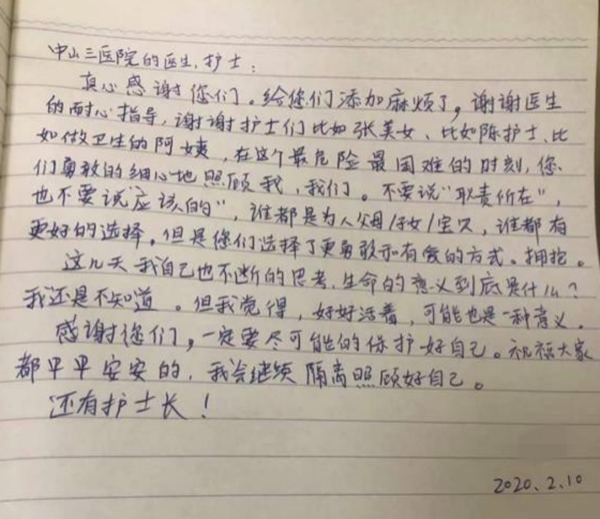 中山三医院的医生，护士：
真心感谢您们。给您们添加麻烦了，谢谢医生
的耐心指导，谢谢护士们比如张美女、比如陈护士、比
如做卫生的阿姨，在这个最危险最困难的时刻，您、
们勇敢的细心地照顾我，我们。不要说"职责所在"，
也不要说"应该的"，谁都是为人父母/子女/宝贝，谁都有
更好的选择。但是您们选择了更勇敢和有爱的方式。拥抱。
这几天我自己也不断的思考，生命的意义到底是什么？
我还是不知道。但我觉得，好好活着，可能也是一种意义。
感谢您们，一定要尽可能的保护好自己。祝福大家
都平平安安的，我会继续隔离照顾好自己。
还有护士长！
2020.2.10